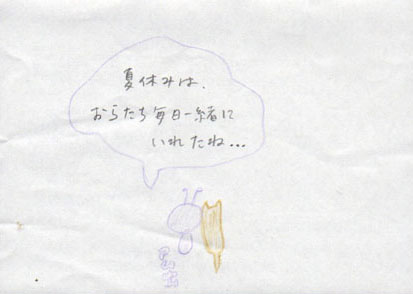 夏休みは、
おらたち毎日一緒に
いれたね…